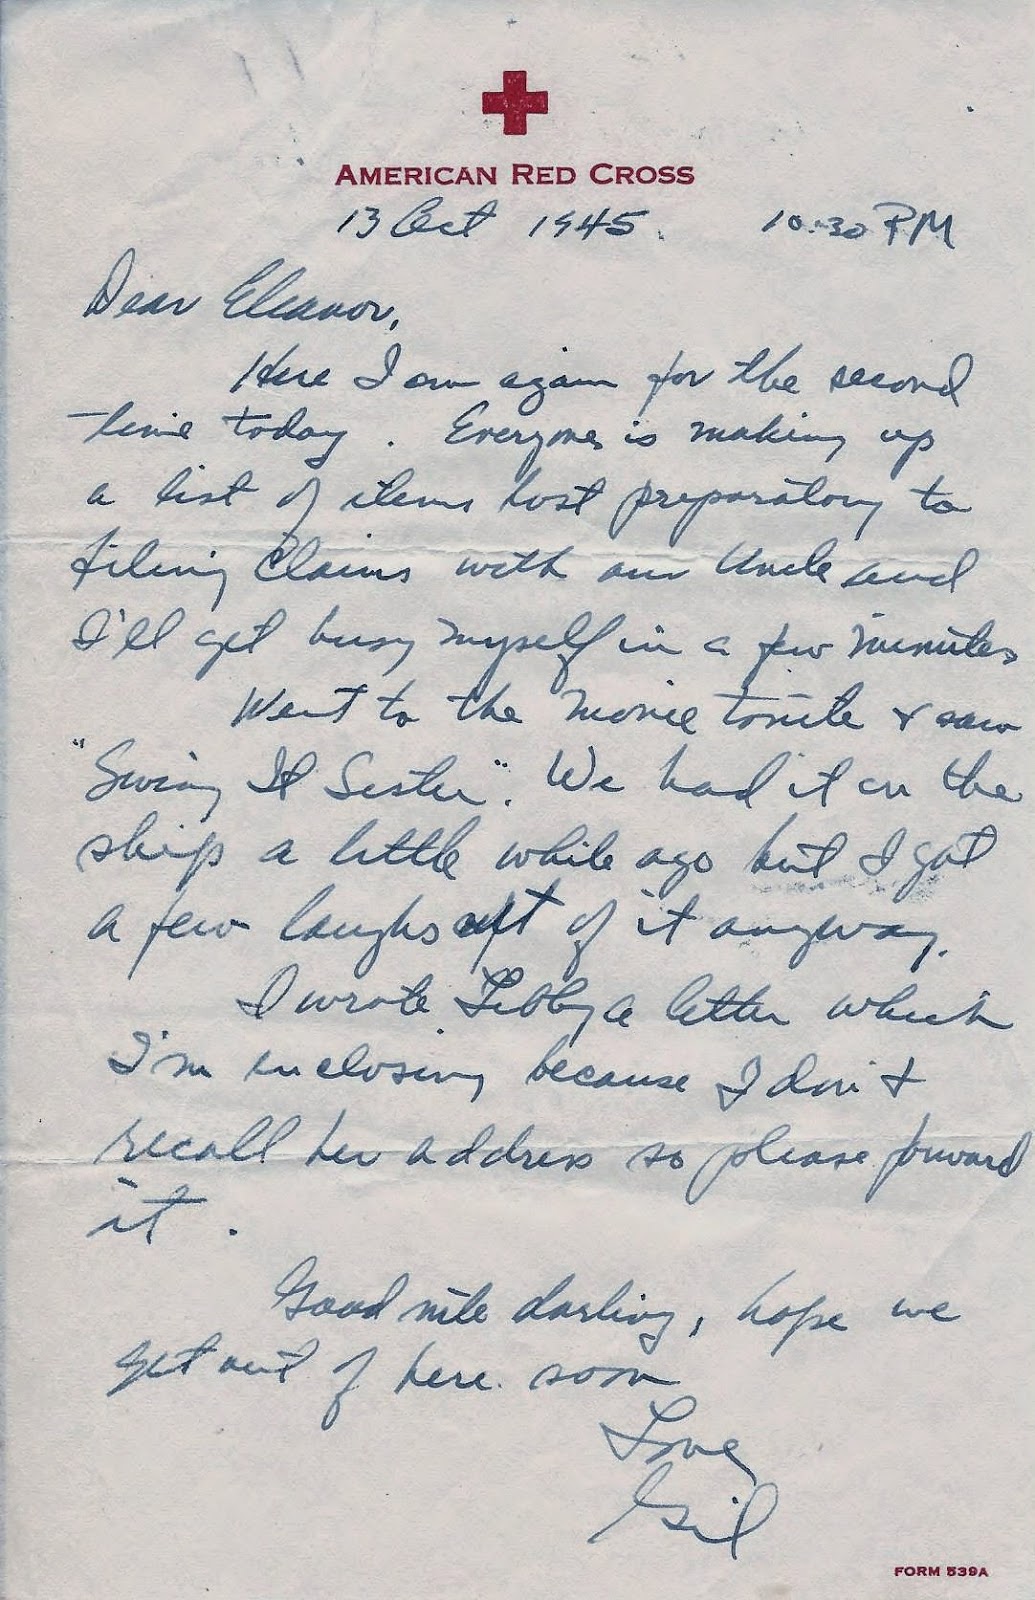 AMERICAN RED CROSS
13 Oct 1945. 10:30 PM
Dear Eleanor,
Here I am again for the second
time today. Everyone is making up
a list of items lost preparatory to
filing claims with our Uncle and
I'll get busy myself in a few minutes
Went to the movie tonite & saw
"Swing It Sister". We had it on the
ship a little while ago but I got
a few laughs out of it anyway.
I wrote Libby a letter which
I'm enclosing because I don't
recall her address so please forward
it.
Good nite darling, hope we
get out of here soon
Love
Gil
FORM 539A